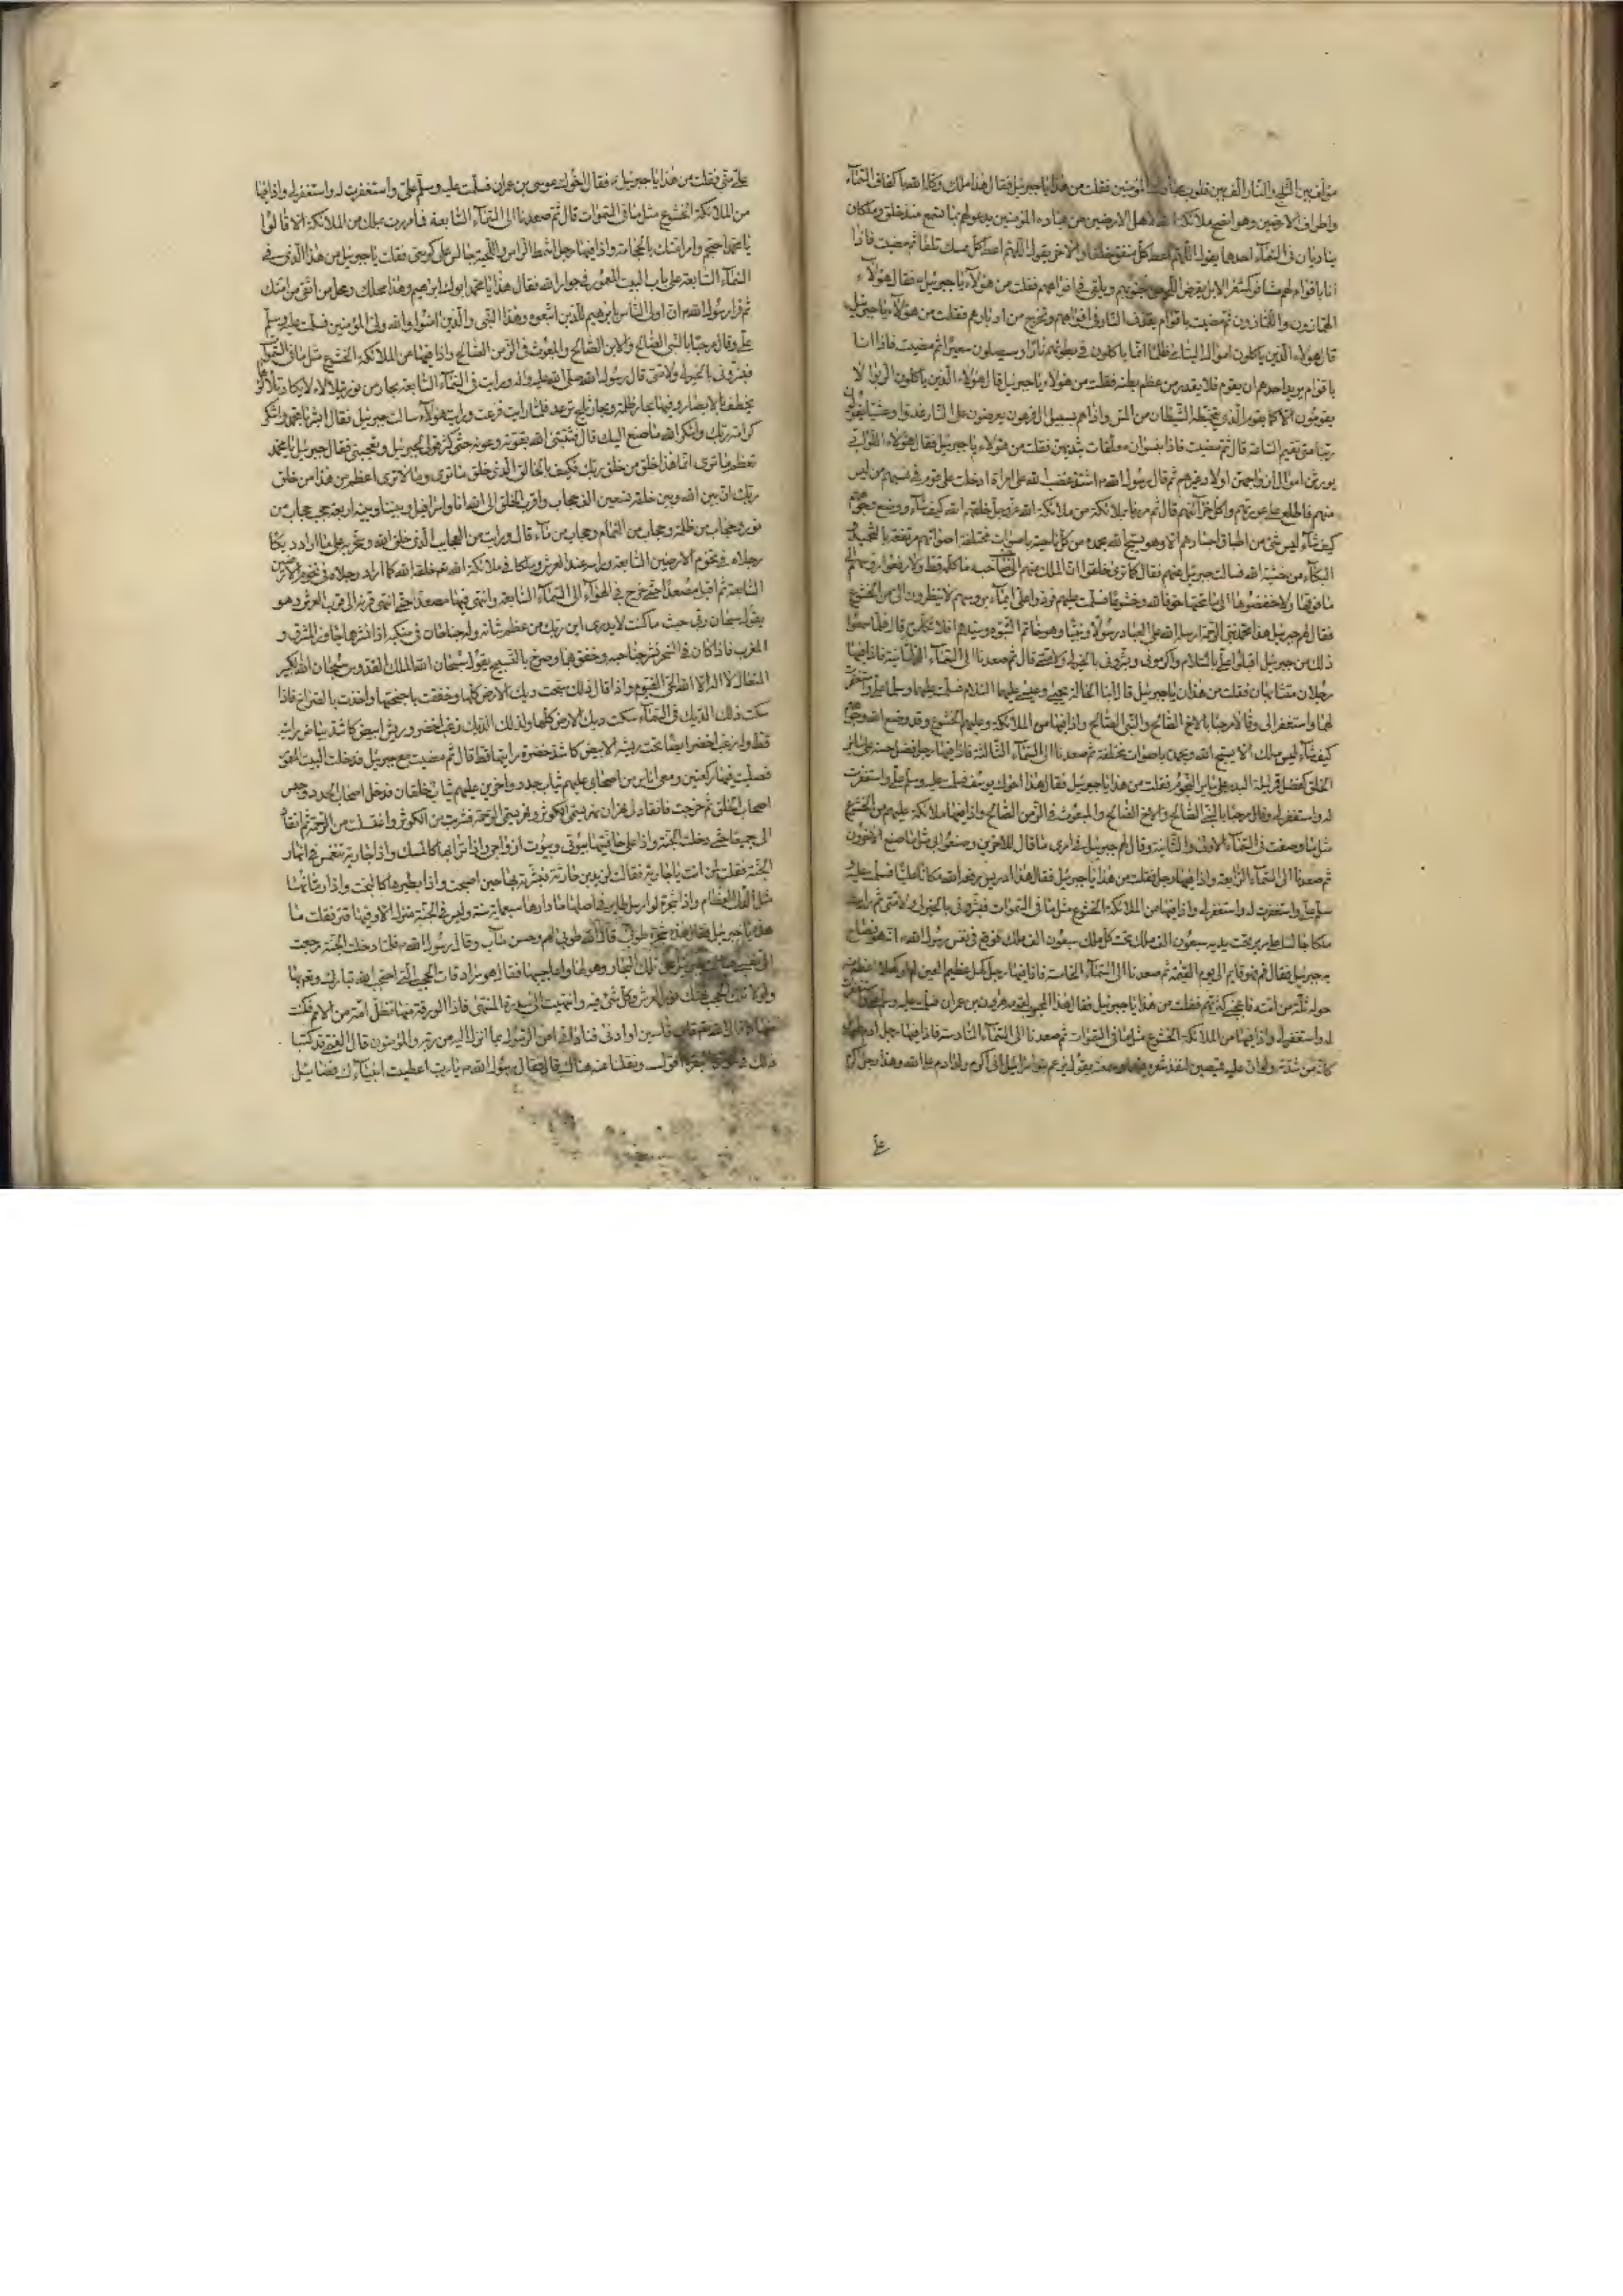 مؤلف بين الثلج والنار الف بين قلوب عبادك المؤمنين فقلت من هذا يا جبرئيل فقال هذا ملك وكله الله باكناف السمآء
واطراف الارضين وهو انصح ملائكة الله لاهل الارضين من عباده المؤمنين يدعو لهم بما تسمع منذ خلق وملكان
يناديان في السمآء احدهما يقول اللهم اعط كل منفق خلفا والاخر يقول اللهم اعط كل ممسك تلفا ثم مضيت فاذا
انا باقوام لهم مشافر كمشفر الابل يقرض اللحم من جنوبهم ويلقى في افواههم فقلت من هؤلآء يا جبرئيل فقال هؤلآء
الهمازون واللمازون ثم مضيت باقوام يقذف النار في افواههم وتخرج من ادبارهم فقلت من هؤلآء يا جبرئيل
قال هؤلاء الذين ياكلون اموال اليتامى ظلما انما ياكلون في بطونهم نارا وسيصلون سعيرا ثم مضيت فاذا انا
باقوام يريد احدهم ان يقوم فلا يقدر من عظم بطنه فقلت من هؤلاء يا جبرئيل قال هؤلاء الذين ياكلون الربوا لا
يقومون الا كما يقوم الذي يتخبطه الشيطان من المس واذا هم بسبيل ال فرعون يعرضون على النار غدوا وعشيا يقولون
ربنا متى تقيم الساعة قال ثم مضيت فاذا بنسوان معلقات بثديهن فقلت من هؤلاء يا جبرئيل فقال هؤلاء اللواتي
يورثن اموال ازواجهن اولاد غيرهم ثم قال رسول الله اشتد غضب الله على امراة ادخلت على قوم في نسبهم من ليس
منهم فاطلع على عوراتهم واكل خزآئنهم قال ثم مررنا بملائكة من ملائكة الله عز وجل خلقهم الله كيف شآء ووضع وجوههم
كيف شآء ليس شئ من اطباق اجسادهم الا وهو يسبح الله بحمده من كل ناحية باصوات مختلفة اصواتهم مرتفعة بالتحميد
البكآء من خشية الله فسالت جبرئيل عنهم فقال كما ترى خلقوا ان الملك منهم الى صاحبه ما كلمه قط ولا رفعوا رؤسهم الى
ما فوقها ولا خفضوها الى ما تحتها خوفا لله وخشوعا فسلمت عليهم فردوا على ايمآء برؤسهم لا ينظرون الى من الخشوع
فقال لهم جبرئيل هذا محمد نبي الرحمة ارسله الله على العباد رسولا ونبيا وهو خاتم النبوة وسيدهم افلا تكلمونه قال فلما سمعوا
ذلك من جبرئيل اقبلوا على بالسلام واكرموني وبشروني بالخير لي ولامتي قال ثم صعدنا الى السمآء الثانية فاذا فيها
رجلان متشابهان فقلت من هذان يا جبرئيل قال ابنا الخالة يحيى وعيسى عليهما السلام فسلمت عليهما وسلما علي واستغفرت
لهما واستغفرا لي وقالا مرحبا بالاخ الصالح والنبي الصالح واذا فيها من الملائكة وعليهم الخشوع وقد وضع الله وجوههم
كيف شآء ليس منهم ملك الا يسبح الله ويحمده باصوات مختلفة ثم صعدنا الى السمآء الثالثة فاذا فيها رجل فضل حسنه على ساير
الخلق كفضل قمر ليلة البدر على ساير النجوم فقلت من هذا يا جبرئيل فقال هذا اخوك يوسف فسلمت عليه وسلم علي واستغفرت
له واستغفر لي وقال مرحبا بالنبي الصالح والاخ الصالح والمبعوث في الزمن الصالح واذا فيها ملائكة عليهم من الخشوع
مثل ما وصفت في السمآء الاولى والثانية وقال لهم جبرئيل في امري ما قال للاخرين وصنعوا بي مثل ما صنع الاخرون
ثم صعدنا الى السمآء الرابعة واذا فيها رجل فقلت من هذا يا جبرئيل فقال هذا ادريس رفعه الله مكانا عليا فسلمت عليه
وسلم علي واستغفرت له واستغفر لي واذا فيها من الملائكة الخشوع مثل ما في السموات فبشروني بالخير لي ولامتي ثم رايت
ملكا جالسا على سرير تحت يديه سبعون الف ملك تحت كل ملك سبعون الف ملك فوقع في نفس رسول الله انه هو فصاح
به جبرئيل فقال قم فهو قايم الى يوم القيمة ثم صعدنا الى السمآء الخامسة فاذا فيها رجل كهل عظيم العين لم ار كهلا اعظم منه
حوله ثلة من امته فاعجبني كثرتهم فقلت من هذا يا جبرئيل فقال هذا المحبب في قومه هرون بن عمران فسلمت عليه وسلم علي واستغفرت
له واستغفر لي واذا فيها من الملائكة الخشوع مثل ما في السموات ثم صعدنا الى السمآء السادسة فاذا فيها رجل ادم طويل
كانه من شنوة ولو ان عليه قميصين لنفذ شعره فيهما وسمعته يقول يزعم بنو اسرائيل اني اكرم ولد ادم على الله وهذا رجل اكرم
على
على الله مني فقلت من هذا يا جبرئيل فقال اخوك موسى بن عمران فسلمت عليه وسلم علي واستغفرت له واستغفر لي واذا فيها
من الملائكة الخشوع مثل ما في السموات قال ثم صعدنا الى السمآء السابعة فما مررت بملك من الملائكة الا قالوا
يا محمد احتجم وامر امتك بالحجامة واذا فيها رجل اشمط الراس واللحية جالس على كرسي فقلت يا جبرئيل من هذا الذي في
السمآء السابعة على باب البيت المعمور في جوار الله فقال هذا يا محمد ابوك ابرهيم وهذا محلك ومحل من اتقى من امتك
ثم قرا رسول الله ان اولى الناس بابرهيم للذين اتبعوه وهذا النبي والذين امنوا والله ولي المؤمنين فسلمت عليه وسلم
علي وقال مرحبا بالنبي الصالح والابن الصالح والمبعوث في الزمن الصالح واذا فيها من الملائكة الخشوع مثل ما في السموات
فبشروني بالخير لي ولامتي قال رسول الله صلى الله عليه واله ورايت في السمآء السابعة بحارا من نور يتلالا لا يكاد تلالؤها
يخطف بالابصار وفيها بحار ظلمة وبحار ثلج ترعد فكلما رايت فزعت ورايت هؤلآء سالت جبرئيل فقال ابشر يا محمد واشكر
كرامة ربك واشكر الله ما صنع اليك قال فثبتني الله بقوته وعونه حتى كثر قولي لجبرئيل وتعجبي فقال جبرئيل يا محمد
تعظم ما ترى انما هذا خلق من خلق ربك فكيف بالخالق الذي خلق ما ترى وما لا ترى اعظم من هذا من خلق
ربك ان بين الله وبين خلقه تسعين الف حجاب واقرب الخلق الى الله انا واسرافيل وبيننا وبينه اربعة حجب حجاب من
نور وحجاب من ظلمة وحجاب من الغمام وحجاب من مآء قال ورايت من العجايب الذي خلق الله وسخر به على ما اراد ديكا
رجلاه في تخوم الارضين السابعة وراسه عند العرش وملكا من ملائكة الله خلقه الله كما اراد رجلاه في تخوم الارضين
السابعة ثم اقبل مصعدا حتى خرج في الهوآء الى السمآء السابعة وانتهى فيها مصعدا حتى انتهى قرنه الى قرب العرش وهو
يقول سبحان ربي حيث ما كنت لا يدري اين ربك من عظم شانه وله جناحان في منكبه اذا نشرهما جاوز المشرق و
المغرب فاذا كان في السحر نشر جناحيه وخفق بهما وصرخ بالتسبيح يقول سبحان الله الملك القدوس سبحان الله الكبير
المتعال لا اله الا الله الحي القيوم واذا قال ذلك سبحت ديك الارض كلها وخفقت باجنحتها واخذت بالصراخ فاذا
سكت ذلك الديك في السمآء سكت ديك الارض كلها ولذلك الديك زغب اخضر وريش ابيض كاشد بياض رايته
قط وله زغب اخضر ايضا تحت ريشه الابيض كاشد خضرة رايتها قط قال ثم مضيت مع جبرئيل فدخلت البيت المعمور
فصليت فيها ركعتين ومعي اناس من اصحابي عليهم ثياب جدد واخرين عليهم ثياب خلقان فدخل اصحاب الجدد وحبس
اصحاب الخلق ثم خرجت فانقاد لي نهران نهر يسمى الكوثر ونهر يسمى الرحمة فشربت من الكوثر واغتسلت من الرحمة ثم انقادا
لي جميعا حتى دخلت الجنة واذا على حافتيها بيوتي وبيوت ازواجي واذا ترابها كالمسك واذا جارية تنغمس في انهار
الجنة فقلت لمن انت يا جارية فقالت لزيد بن حارثة فبشرته بها حين اصبحت واذا بطيرها كالبخت واذا رمانها
مثل الدلآء العظام واذا شجرة لو ارسل طاير في اصلها ما دارها سبعماية سنة وليس في الجنة منزل الا وفيها قتر فقلت ما
هذه يا جبرئيل فقال هذه شجرة طوبى قال الله طوبى لهم وحسن مآب وقال رسول الله فلما دخلت الجنة رجعت
الى نفسي فسالت جبرئيل عن تلك البحار وهولها واعاجيبها فقال هو سرادقات الحجب التي احتجب الله تبارك وتعالى بها
ولولا تلك الحجب لهتك نور العرش وكل شئ فيه وانتهيت الى سدرة المنتهى فاذا الورقة منها تظل امة من الامم فكنت
منها كما قال الله قاب قوسين او ادنى فناداني امن الرسول بما انزل اليه من ربه والمؤمنون قد كتبنا
ذلك في سورة البقرة فقال رسول الله يا رب اعطيت انبيآءك فضايل